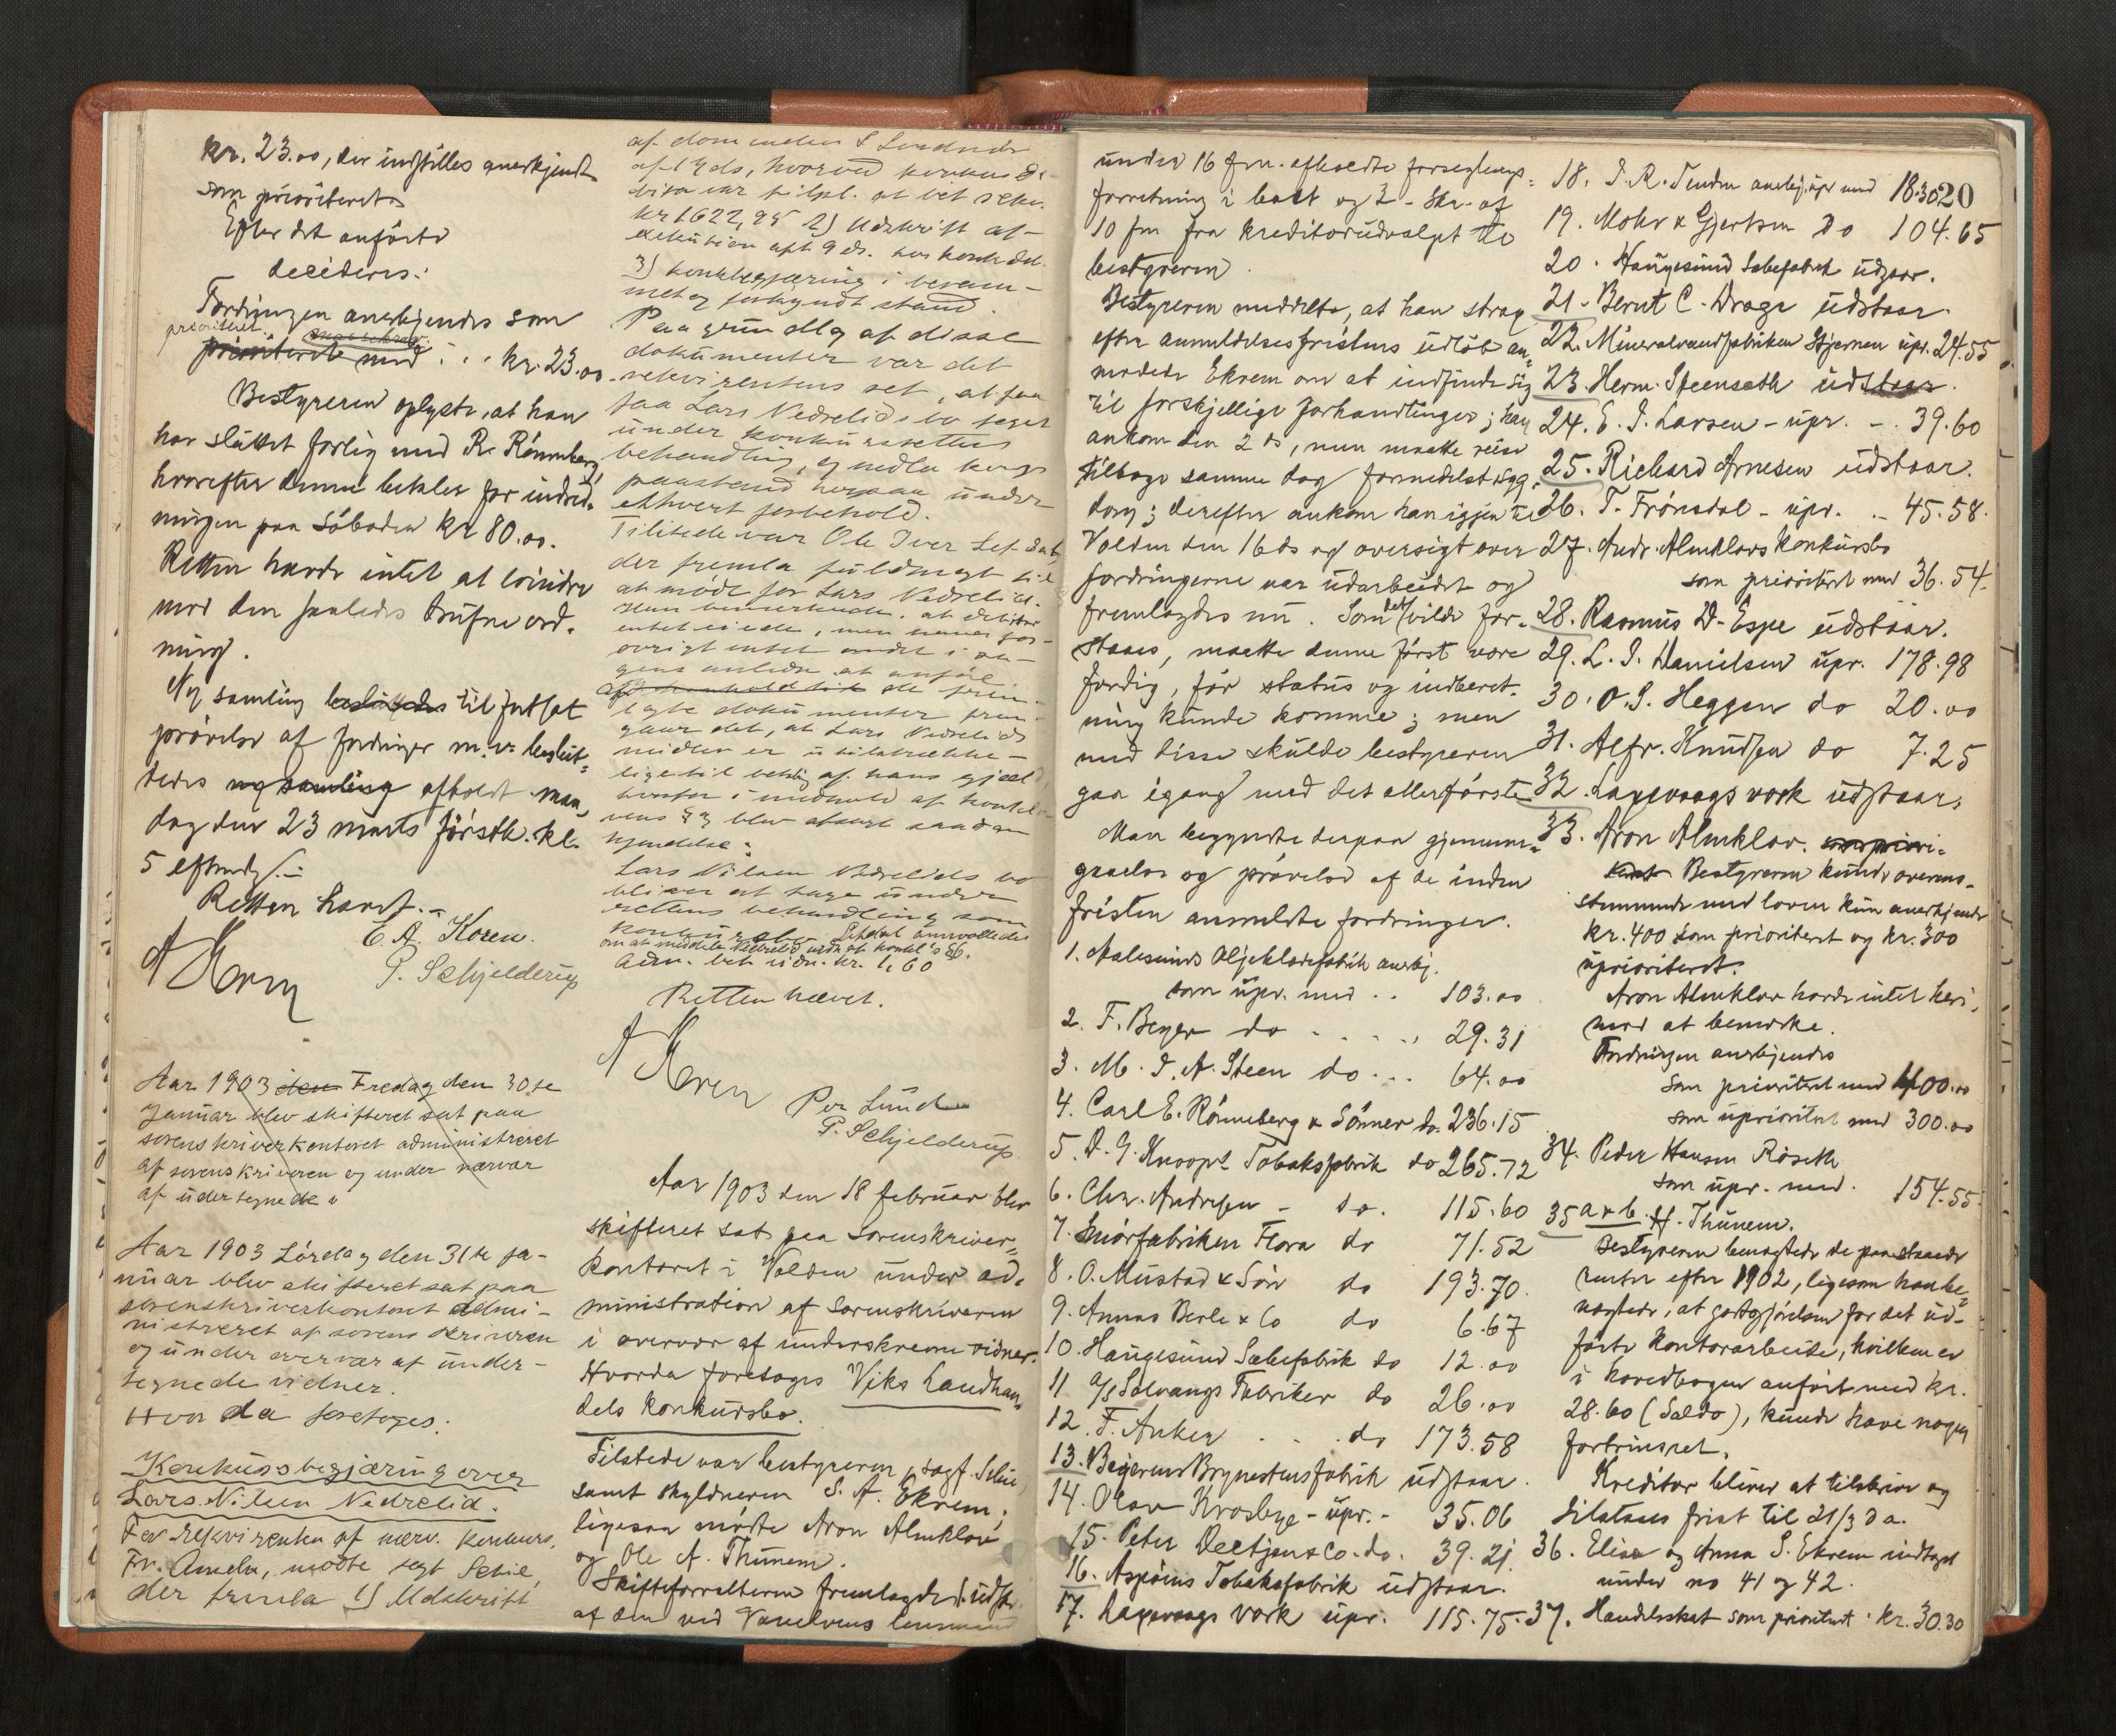 kr. 23.00, der indstilles anerkjendt
som prioriteret
Efter det anførte
decideres:
Fordringen anerkjendes som
prioriteret
prioriteret med . . . kr. 23.00
Bestyreren oplyste, at han
har sluttet forlig med R. Rønneberg,
hvorefter denne betaler for indred-
ningen paa Søboden kr 80.00.
Retten havde intet at erindre
mod den saaledes trufne ord-
ning.
Ny samling besluttedes til fortsat
prøvelse af fordringer m. v. beslut-
tedes ny samling afholdt man-
dag den 23 marts førstk. kl.
5 eftmdg.
Retten hævet.
E. A. Koren.
P. Schjelderup
A Koren
Aar 1903 den Fredag den 30te
Januar blev skifteret sat paa
sorenskriverkontoret administreret
af sorenskriveren og under nærvær
af undertegnede
Aar 1903 Lørdag den 31te ja-
nuar blev skifteret sat paa
sorenskriverkontoret admi-
nistreret af sorenskriveren
og under overvær af under-
tegnede vidner.
Hvor da foretoges:
Konkursbegjæring over
Lars Nilsen Nedrelid.
For rekvirenten af nærv. konkurs,
Fr. mødte sagf Schie,
der fremla 1) Udskrift
af dom
af ds, hvorved
var tilpl. at bet
kr 1622,95 2) Udskrift af
9 ds. hos
3) konkbegjæring i beram-
met og forkyndt stand.
Paa grundlag af disse
dokumenter var det
rekvirentens ret, at faa
taa Lars Nedrelids bo taget
under konkursrettens
behandling, og nedla
paastand herpaa under
ethvert forbehold.
Tilstede var Ole Iver
der fremla fuldmagt til
at møde for Lars Nedrelid.
Han bemerkede, at debitor
intet eiede, men havde for-
øvrigt intet andet i
anledn. at anføre.
de frem-
lagte dokumenter frem-
gaar det, at Lars Nedrelids
midler er utilstrække-
lige til betaling af hans gjæld,
hvorfor i medhold af konkl-
vens § 3 blev afsagt saadan
kjendelse:
Lars Nilsen Nedrelids bo
bliver at tage under
rettens behandling som
konkursbo.
om at meddele Nedrelid udsk af konkl's § 6.
Retten hævet.
A Koren
Per Lund
P. Schjelderup
Aar 1903 den 18 februar blev
skifteret sat paa Sorenskriver-
kontoret i Volden under ad-
ministration af sorenskriveren
i overvær af underskrevne vidner.
Hvorda foretoges Viks Landhan-
dels konkursbo.
Tilstede var bestyreren, sagf. Schie,
samt skyldneren S. A. Ekrem;
ligesaa mødte Aron Almklov
og Ole A. Thunem.
Skifteforvalteren fremlagde 1. udskr.
af den ved Vanelvens lensmand
under 16 f.m. afholdte forseglings-
forretning i boet og 2 - Skr. af
10 fm fra kreditorudvalget til
bestyreren.
Bestyreren meddelte, at han strax
efter anmeldelsesfristens udløb an-
modede Ekrem om at indfinde sig
til forskjellige forhandlinger; han
ankom den 2 ds, men maatte reise
tilbage samme dag formedelst syg-
dom; derefter ankom han igjen til
Volden den 16 ds og oversigt over
fordringerne var udarbeidet og
fremlagdes nu. Som det vilde for-
staaes, maatte denne først være
færdig, før status og indberet-
ning kunde komme; men
med disse skulde bestyreren
gaa igang med det allerførste.
Man begyndte derpaa gjennem-
gaaelse og prøvelse af de inden
fristen anmeldte fordringer.
1. Aalesunds Oljeklædefabrik anerkj.
som upr. med . . 103.00
2. F. Beyer do . . . 29.31
3. M. I. A. Steen do . . . 64.00
4. Carl E. Rønneberg & Sønner do. 236.15
5. D. G. Knoops Tobaksfabrik do 265.72
6. Chr. Andresen - do. 115.60
7. Smørfabriken Flora do 71.52
8. O. Mustad & Søn do 193.70.
9. Annas Berle & Co do 6.67
10. Haugesund Sæbefabrik do 12.00
11 a/s Solvangs Fabriker do 26.00
12. F. Anker . . . do 173.58
13. Beyerens Brynestensfabrik udstaar.
14. Olav Krosbye - upr. - 35.06
15. Peter Deetjen & Co. do. 39.21
16. Aspøens Tobaksfabrik udstaar.
17. Laxevaags værk upr. 115.75.
18. I. R. Tenden anerkj. upr med 18.30
20
19. Mohr & Gjertsen do 104.65
20. Haugesund Sæbefabrik udgaar.
21. Bernt C. Drage udstaar.
22. Mineralvandfabriken Stjernen upr. 24.55
23. Herm. Steensæth udstaar.
24. E. I. Larsen - upr. - . 39.60
25. Richard Arnesen udstaar.
26. T. Frønsdal - upr. . - 45.58.
27. Andr. Almklovs konkursbo
som prioriteret med 36.54.
28. Rasmus D. Espe udstaar.
29. L. I. Danielsen upr. 178.98
30. O. S. Heggen do 20.00
31. Alfr. Knudsen do 7.25
32. Laxevaags værk udstaar.
33. Aron Almklov. som priori-
teret Bestyreren kunde overens-
stemmende med loven kun anerkjende
kr. 400 som prioriteret og kr. 300
uprioriteret.
Aron Almklov havde intet heri-
mod at bemærke.
Fordringen anerkjendes
som prioriteret med 400.00
som uprioritert med 300.00
34. Peder Hansen Røseth
som upr. med . 154.55
35 a & b. H. Thunem.
Bestyreren benægtede de paastaaede
renter efter 1902, ligesom han be-
nægtede, at godtgjørelsen for det ud-
førte kontorarbeide, hvilken er
i hovedbogen anført med kr.
28.60 (Saldo), kunde have nogen
fortrinsret.
Kreditor bliver at tilskrive og
tilstaaes frist til 21/3 d a.
36. Elise og Anna S. Ekrem indtaget
under no 41 og 42.
37. Handelsskat som prioritert . kr. 30.30